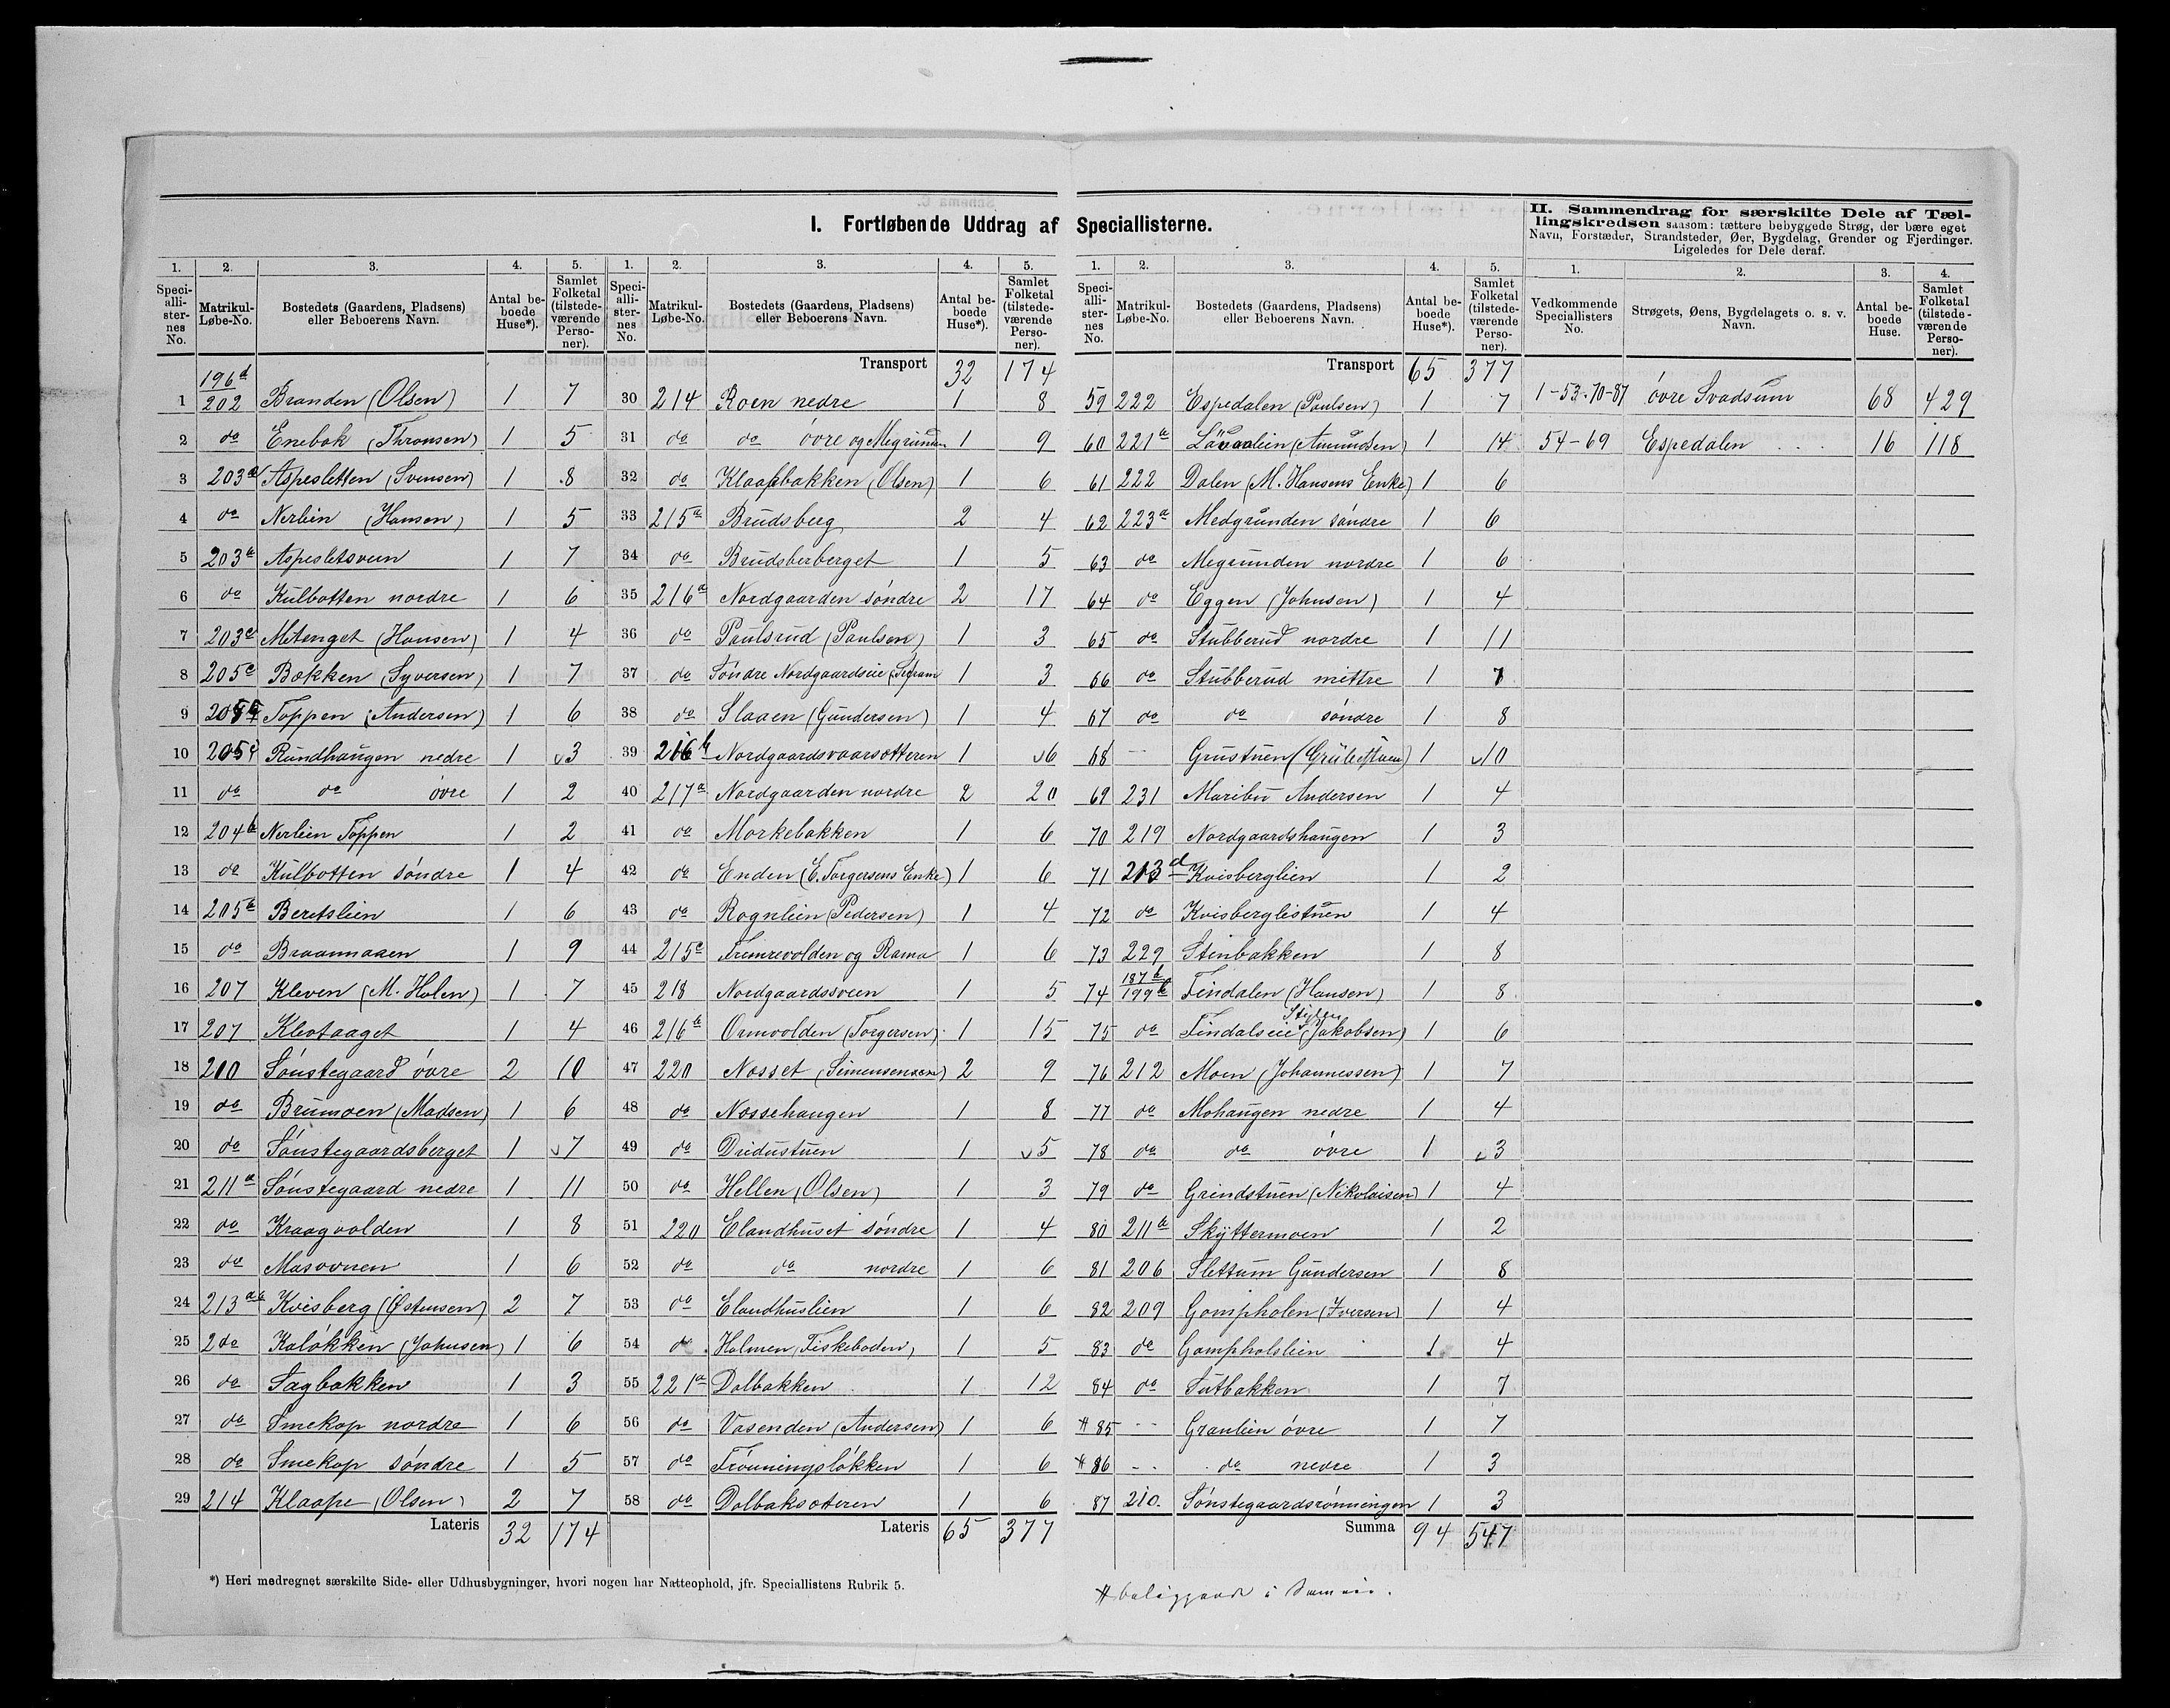 I. Fortløbende Uddrag af Speciallisterne.
1. 2. 3. 4. 5.
Specialli-sternes No. Matrikul-Løbe-No. Bostedets (Gaardens, Pladsens) eller Beboerens Navn. Antal beboede Huse*). Samlet Folketal (tilstedeværende Personer).
1 196d/202 Branden (Olsen) 1 7
2 do Enebok (Thronsen) 1 5
3 203a Aspesletten (Svensen) 1 8
4 do Nerlien (Hansen) 1 5
5 203b Aspesletsveen 1 7
6 do Kulbotten nordre 1 6
7 203c Metenget (Hansen) 1 4
8 205c Bakken (Syversen) 1 7
9 205 Toppen (Andersen) 1 6
10 205 Rundhaugen nedre 1 3
11 do do óvre 1 2
12 204b Nerlien Toppen 1 2
13 do Kulbotten sóndre 1 4
14 205b Beretslien 1 6
15 do Braanmaaen 1 9
16 207 Kleven (M. Holen) 1 7
17 207 Klevtaaget 1 4
18 210 Sónstegaard óvre 2 10
19 do Brumoen (Madsen) 1 6
20 do Sónstegaardsberget 1 7
21 211a Sónstegaard nedre 1 11
22 do Kraagvolden 1 8
23 do Masovnen 1 6
24 213ab Kvisberg (Østensen) 2 7
25 do Kalókken (Johnsen) 1 6
26 do Sagbakken 1 3
27 do Smekop nordre 1 6
28 do Smekop sóndre 1 5
29 214 Klaape (Olsen) 2 7
Lateris 32 174
1. 2. 3. 4. 5.
Specialli-sternes No. Matrikul-Løbe-No. Bostedets (Gaardens, Pladsens) eller Beboerens Navn. Antal beboede Huse*). Samlet Folketal (tilstedeværende Personer).
Transport 32 174
30 214 Roen nedre 1 8
31 do do óvre og Megrunden 1 9
32 do Klaapbakken (Olsen) 1 6
33 215a Brudsberg 2 4
34 do Brudsberberget 1 5
35 216a Nordgaarden sóndre 2 17
36 do Paulsrud (Paulsen) 1 3
37 do Sóndre Nordgaardseie 1 3
38 do Slaaen (Gundersen) 1 4
39 216b Nordgaardsvaarsætteren 1 6
40 217a Nordgaarden nordre 2 20
41 do Morkebakken 1 6
42 do Enden (E. Torgersens Enke) 1 6
43 do Rognlien (Pedersen) 1 4
44 215c Fremrevolden og Rama 1 6
45 218 Nordgaardssveen 1 5
46 216b Ormvolden (Torgersen) 1 15
47 220 Nosset (Simensensen) 2 9
48 do Nossehaugen 1 8
49 do Dridustuen 1 5
50 do Hellen (Olsen) 1 3
51 220 Elandhuset sóndre 1 4
52 do do nordre 1 6
53 do Elandhuslien 1 6
54 do Holmen, Fiskeboden 1 5
55 221a Dalbakken 1 12
56 do Vasenden (Andersen) 1 6
57 do Frónningslókken 1 6
58 do Dalbaksæteren 1 6
Lateris 65 377
1. 2. 3. 4. 5.
Specialli-sternes No. Matrikul-Løbe-No. Bostedets (Gaardens, Pladsens) eller Beboerens Navn. Antal beboede Huse*). Samlet Folketal (tilstedeværende Personer).
Transport 65 377
59 222 Espedalen (Paulsen) 1 7
60 221b (Amundsen) 1 14
61 222 Dalen (M. Hansens Enke) 1 6
62 223a Medgrunden sóndre 1 6
63 do Megrunden nordre 1 6
64 do Eggen (Johnsen) 1 4
65 do Stubberud nordre 1 11
66 do Stubberud mittre 1 7
67 do do sóndre 1 8
68 Grustuen (Grubestuen) 1 10
69 231 Maribu Andersen 1 4
70 219 Nordgaardshaugen 1 3
71 213d Kvisberglien 1 2
72 do Kvisberglistuen 1 4
73 229 Stenbakken 1 8
74 187b/199b Findalen (Hansen) 1 8
75 do Findalseie Stylen (Jakobsen) 1 6
76 212 Moen (Johannessen) 1 7
77 do Mohaugen nedre 1 4
78 do do óvre 1 3
79 do Grindstuen (Nikolaisen) 1 4
80 211b Skyttermoen 1 2
81 206 Slettum Gundersen 1 8
82 209 Gompholen (Iversen) 1 4
83 do Gompholslien 1 4
84 do Sutbakken 1 7
# 85 Granlien óvre 1 7
# 86 do nedre 1 3
87 210. Sónstegaardsrónningen 1 3
Summa 94 547
II. Sammendrag for særskilte Dele af Tæl-
lingskredsen saasom: tættere bebyggede Strøg, der bære eget
Navn, Forstæder, Strandsteder, Øer, Bygdelag, Grender og Fjerdinger.
Ligeledes for Dele deraf.
1. 2. 3. 4.
Vedkommende Speciallisters No. Strøgets, Øens, Bygdelagets o. s. v. Navn. Antal beboede Huse. Samlet Folketal (tilstedeværende Personer).
1-53-70-87 óvre Svadsum 68 429
54-69 Espedalen 16 118
*) Heri medregnet særskilte Side- eller Udhusbygninger, hvori nogen har Natteophold, jfr. Speciallistens Rubrik 5.